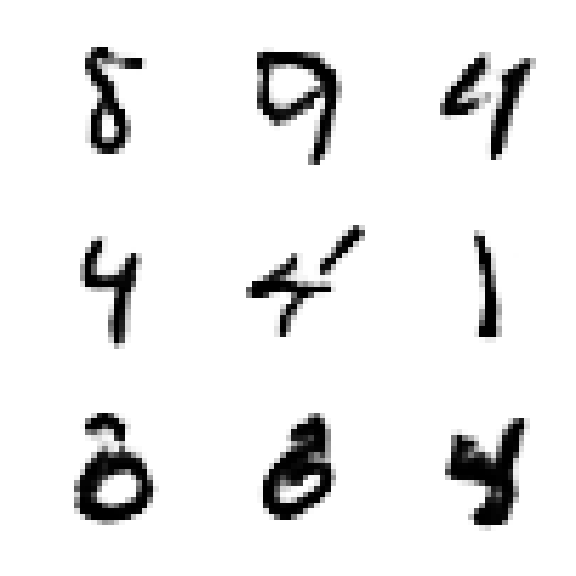 8 9 4
4 4 1
8 8 4